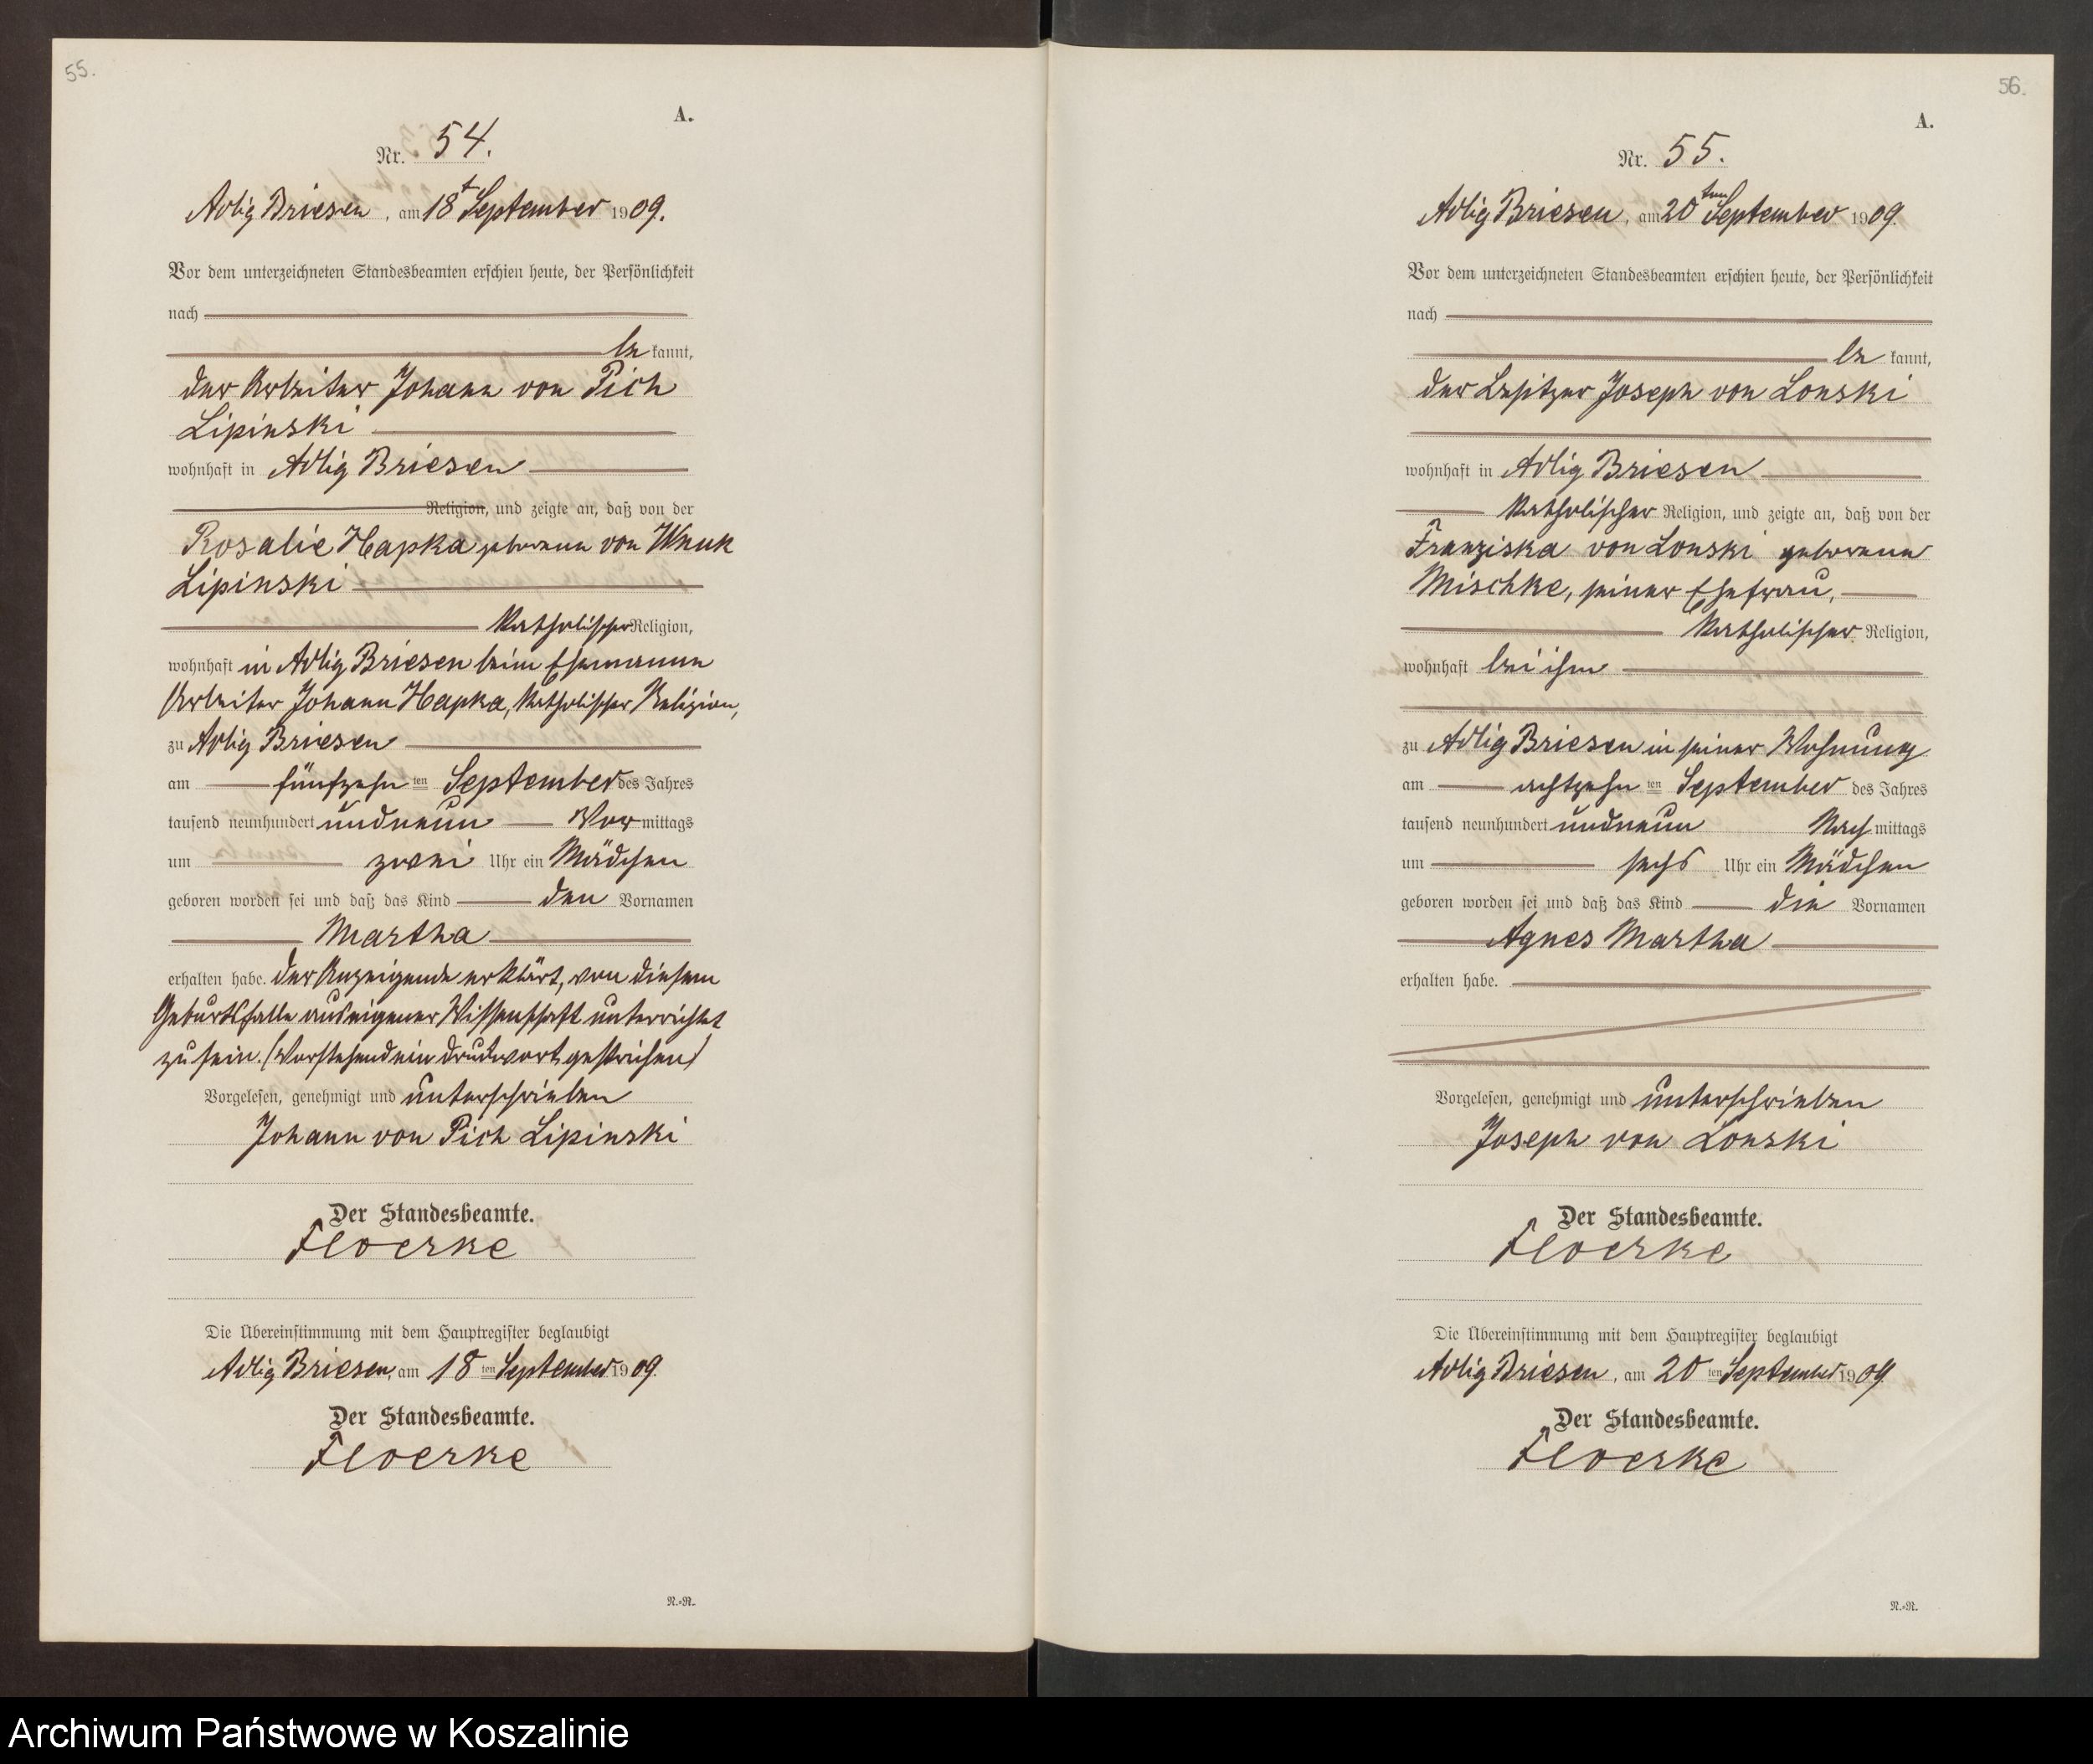 55.
A.
Nr. 54.
Adlig Briesen, am 18t September 1909.
Vor dem unterzeichneten Standesbeamten erschien heute, der Persönlichkeit
nach
be kannt,
der Arbeiter Johann von Pich
Lipinski
wohnhaft in Adlig Briesen
Religion, und zeigte an, daß von der
Rosalie Hapka geborenen von Wnuk
Lipinski
katholischer Religion,
wohnhaft in Adlig Briesen beim Ehemanne
Arbeiter Johann Hapka, katholischer Religion,
zu Adlig Briesen
am fünfzehn ten September des Jahres
tausend neunhundert undneun Vor mittags
um zwei Uhr ein Mädchen
geboren worden sei und daß das Kind den Vornamen
Martha
erhalten habe. Der Anzeigende erklärt, von diesem
Geburtsfalle aus eigener Wissenschaft unterrichtet
zu sein. (Vorstehend ein Druckwort gestrichen)
Vorgelesen, genehmigt und unterschrieben
Johann von Pich Lipinski
Der Standesbeamte.
Floerke
Die Übereinstimmung mit dem Hauptregister beglaubigt
Adlig Briesen, am 18 ten September 1909.
Der Standesbeamte.
Floerke
N.=R.
56.
A.
Nr. 55.
Adlig Briesen, am 20ten September 1909.
Vor dem unterzeichneten Standesbeamten erschien heute, der Persönlichkeit
nach
be kannt,
der Besitzer Joseph von Lonski
wohnhaft in Adlig Briesen
katholischer Religion, und zeigte an, daß von der
Franziska von Lonski geborenen
Mischke, seiner Ehefrau,
katholischer Religion,
wohnhaft bei ihm
zu Adlig Briesen in seiner Wohnung
am achtzehn ten September des Jahres
tausend neunhundert undneun Nach mittags
um sechs Uhr ein Mädchen
geboren worden sei und daß das Kind die Vornamen
Agnes Martha
erhalten habe.
Vorgelesen, genehmigt und unterschrieben
Joseph von Lonski
Der Standesbeamte.
Floerke
Die Übereinstimmung mit dem Hauptregister beglaubigt
Adlig Briesen, am 20 ten September 1909.
Der Standesbeamte.
Floerke
N.=R.
Archiwum Państwowe w Koszalinie